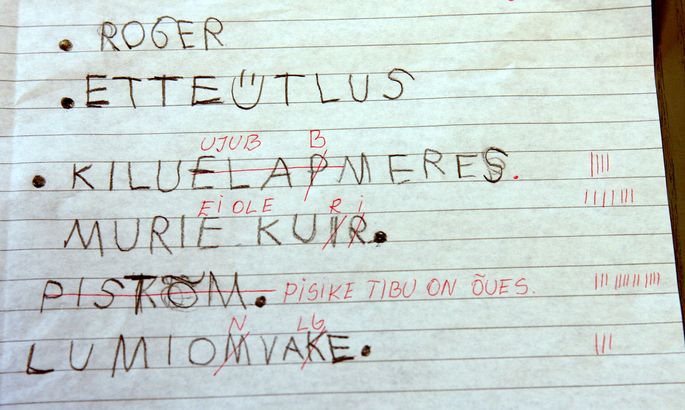 ROGER
ETTEÜTLUS
UJUB B
KILUELAPMERES.
EI OLE R I
MURIE KUIR.
PISTKÕM. PISIKE TIBU ON ÕUES.
N LG
LUMIOMVAKE.